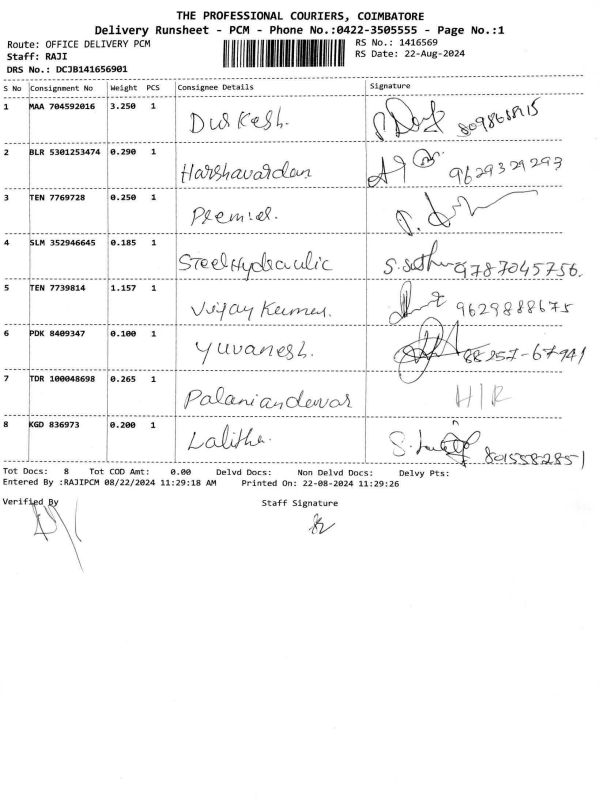 THE PROFESSIONAL COURIERS, COIMBATORE
Delivery Runsheet - PCM - Phone No.:0422-3505555 - Page No.:1
Route: OFFICE DELIVERY PCM RS No.: 1416569
Staff: RAJI RS Date: 22-Aug-2024
DRS No.: DCJB141656901
S No Consignment No Weight PCS Consignee Details Signature
1 MAA 704592016 3.250 1 Durkesh.
2 BLR 5301253474 0.290 1 Harshavardan 9629329293
3 TEN 7769728 0.250 1 Premier.
4 SLM 352946645 0.185 1 Steel Hydraulic 9787045756.
5 TEN 7739814 1.157 1 Vijay Kumar. 9629888675
6 PDK 8409347 0.100 1 Yuvanesh. 88257-67941
7 TDR 100048698 0.265 1 Palaniandavar H/R
8 KGD 836973 0.200 1 Lalitha. 8015582851
Tot Docs: 8 Tot COD Amt: 0.00 Delvd Docs: Non Delvd Docs: Delvy Pts:
Entered By :RAJIPCM 08/22/2024 11:29:18 AM Printed On: 22-08-2024 11:29:26
Verified By Staff Signature